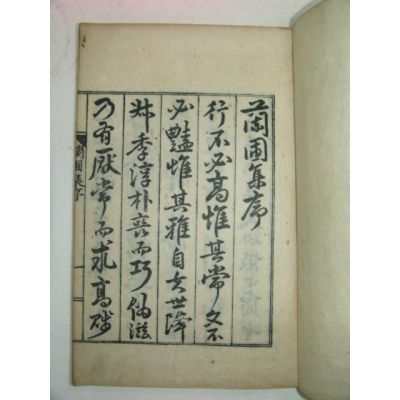 蘭圃集序
行不必高惟其常文不
必豔惟其雅自夫世降
叔季淳朴喪而巧偽滋
乃有厭常而求高
蘭圃集序